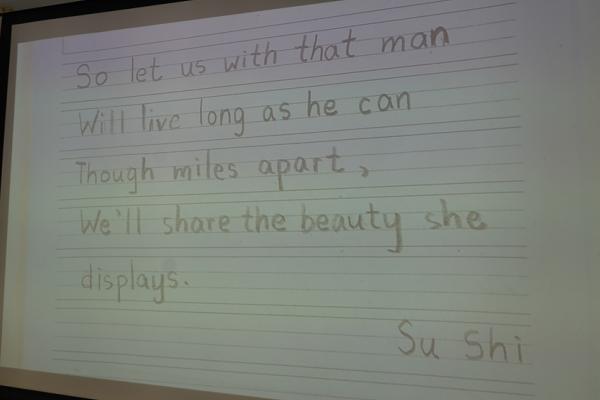 So let us with that man
Will live long as he can
Though miles apart,
We'll share the beauty she
displays.
Su Shi